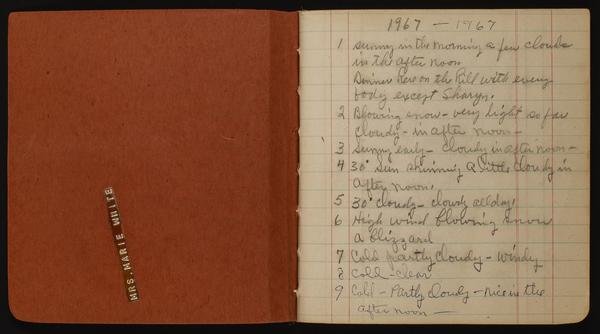 MRS. MARIE WHITE
1967 — 1967
1 sunny in the morning a few clouds
in the after noon
Dinner here on the hill with every
body except Sharyn.
2 Blowing snow - very light so far
cloudy - in after noon -
3 Sunny early - cloudy in after noon -
4 30° Sun shinning a little cloudy in
after noon.
5 30° cloudy - cloudy all day.
6 High wind blowing snow
a blizzard
7 Cold partly cloudy - windy
8 Cold - clear
9 Cold - Partly cloudy - nice in the
after noon —